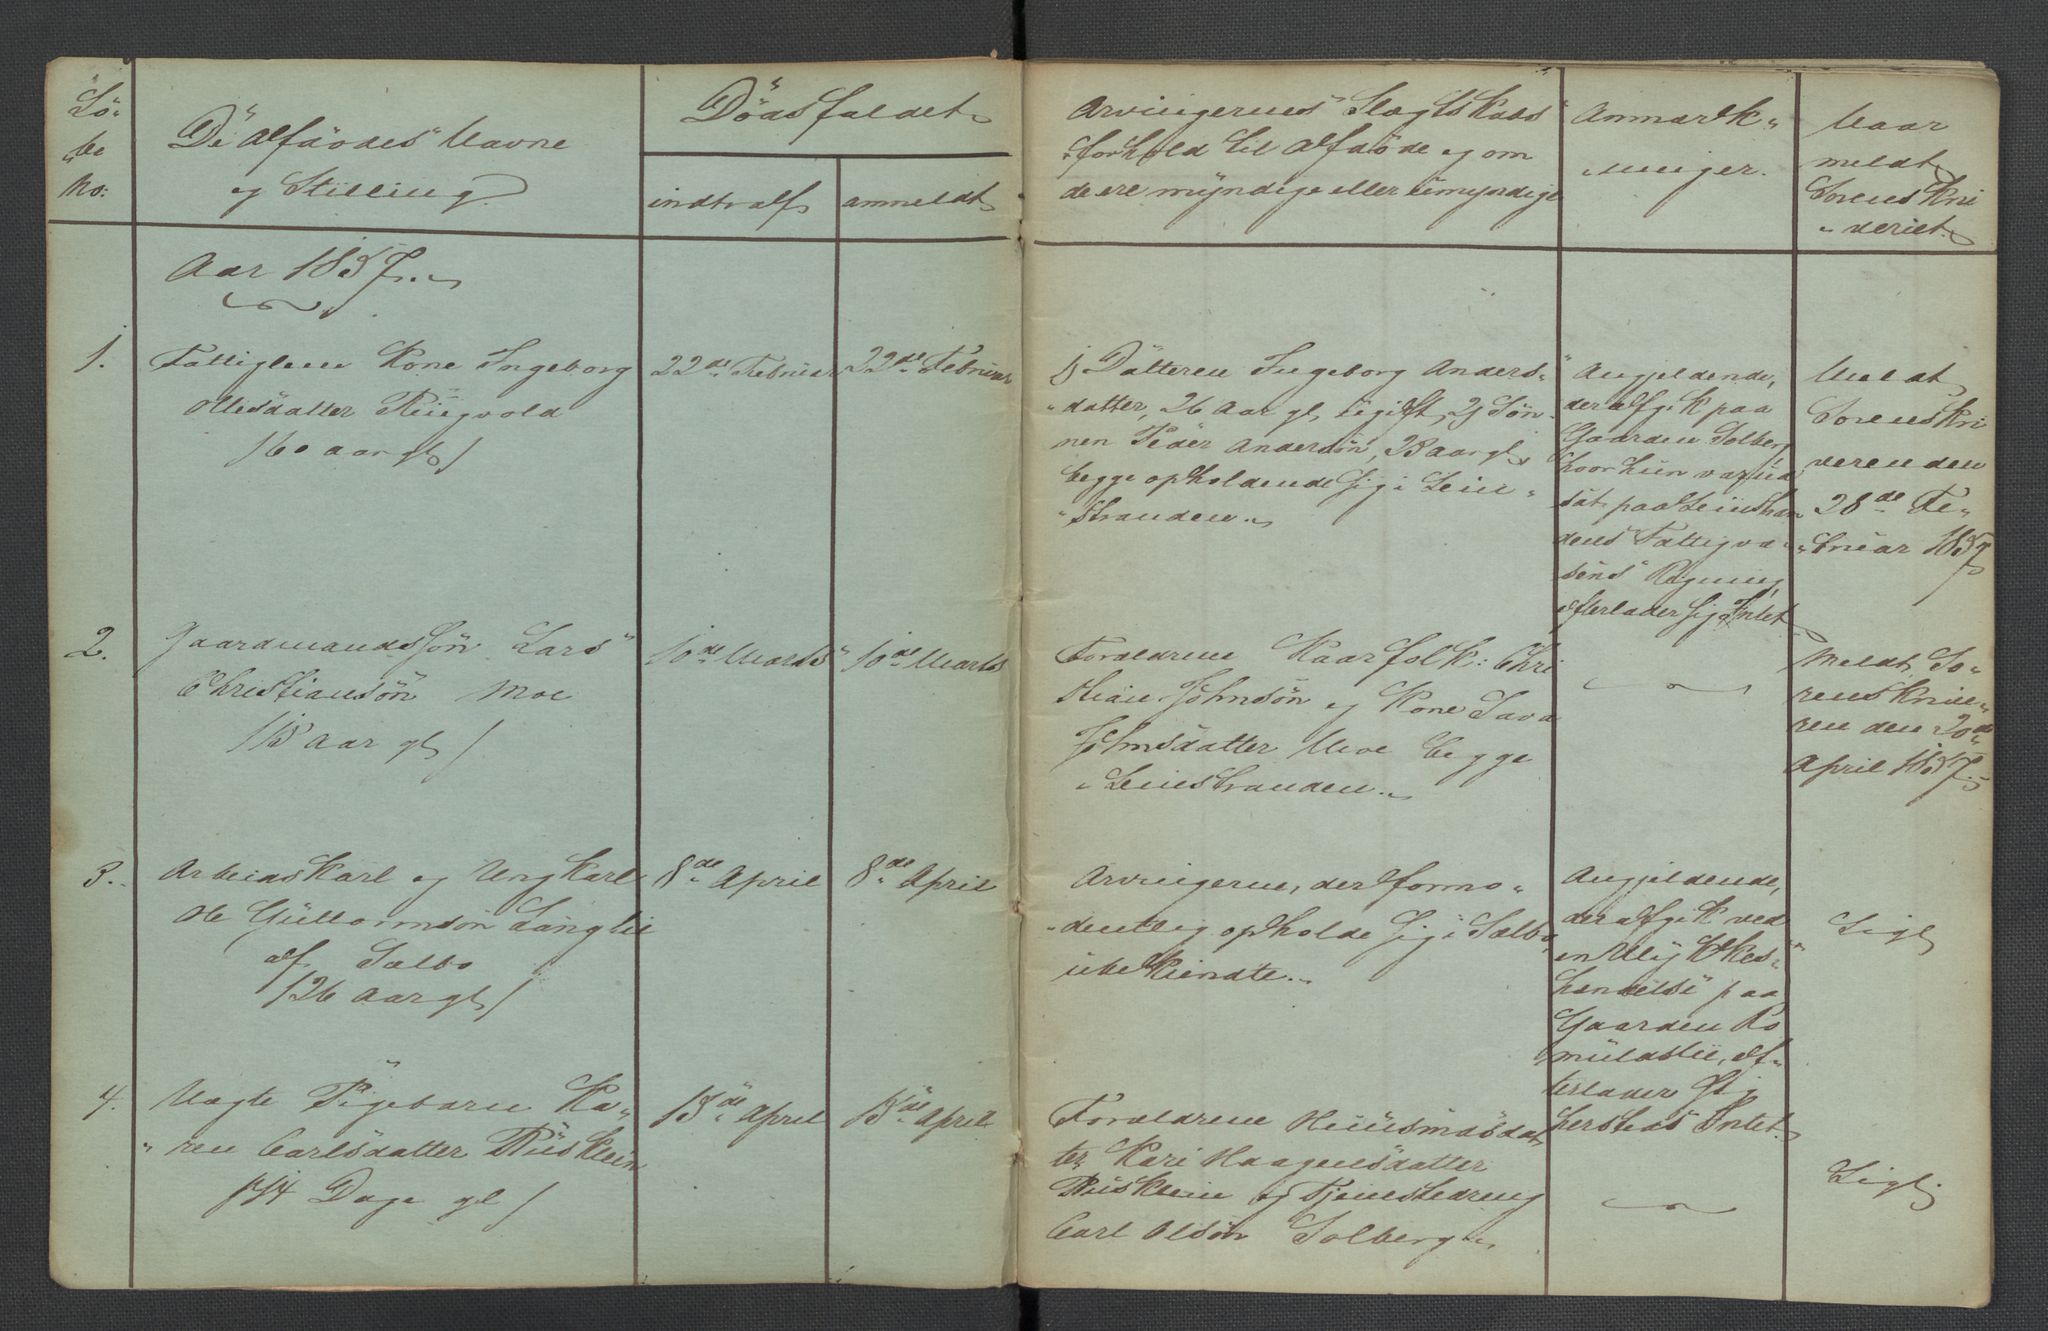 Lö-
be
No:
De Afdödes Navne
og Stilling
Dödsfaldet
indtraf
anmeldt
Arvingernes Slægtskabs
forhold til Afdöde og om
de ere myndige eller umyndige
Anmærk-
ninger.
Naar
meldt
Sorenskri
veriet.
Aar 1857.
1.
Fattiglem Kone Ingeborg
Olesdatter Ringvold
/60 aar gl/
22de Februar
22de Februar
1) Datteren Ingeborg Anders-
datter, 26 Aar gl, ugift, 2) Søn-
nen Peder Andersön, 23 aar gl,
begge opholdende sig i Lein-
stranden.
Angjeldende,
der afgik paa
Gaarden Solberg
hvor hun var ud
sat paa Leinstran
dens Fattigvæ-
sens Regning,
efterlader sig Intet.
Meldt
Sorenskri
veren den
28de Fe-
bruar 1857
2.
Gaardmandssön Lars
Christiansön Moe
/15 Aar gl/
10de Marts
10de Marts
Foraldrene Kaarfolk: Chri
stian Johnsön og Kone
Johnsdatter Moe begge
i Leinstranden.
Meldt So-
renskrive-
ren den 20de
April 1857.
3.
Arbeidskarl og Ungkarl
Ole Guttormsön Langlie
af Sælbo
/26 Aar gl/
8de April
8de April
Arvingerne, der formo-
dentlig opholde sig i Sælbo,
ubekiendte.
Angjeldende,
der afgik ved
en Ulykkes-
hændelse paa
Gaarden Ro
muldslie, ef-
terlader sig
hersteds Intet.
Ligl
4.
Uægte Pigebarn Ka-
ren Carlsdatter Rüsklein
/14 Dage gl/
15de April
15de April
Foraldrene Huusmasdat
ter Kari Haagensdatter
Rusklein og Tjenestedreng
Carl Olsön Solberg.
Ligl.